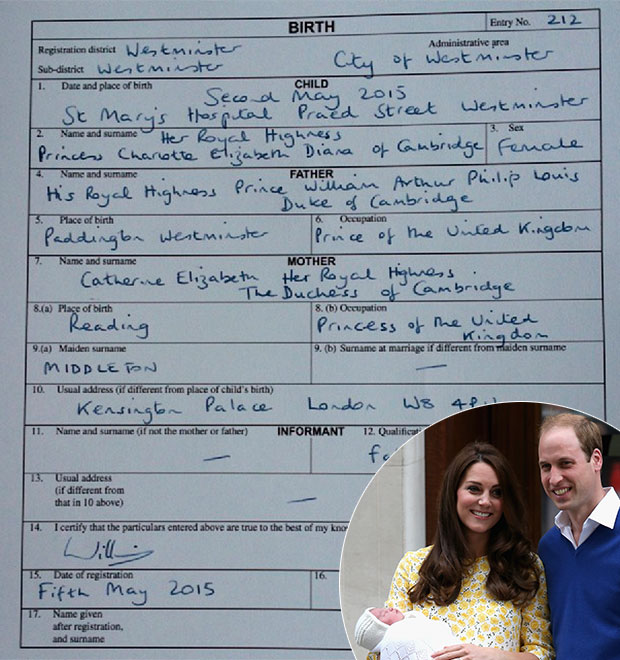 BIRTH
Entry No. 212
Registration district Westminster
Administrative area
Sub-district Westminster
City of Westminster
1. Date and place of birth
CHILD
Second May 2015
St Mary's Hospital Praed Street Westminster
2. Name and surname Her Royal Highness
3. Sex
Princess Charlotte Elizabeth Diana of Cambridge
Female
4. Name and surname
FATHER
His Royal Highness Prince William Arthur Philip Louis
Duke of Cambridge
5. Place of birth
6. Occupation
Paddington Westminster
Prince of the United Kingdom
7. Name and surname
MOTHER
Catherine Elizabeth Her Royal Highness
The Duchess of Cambridge
8.(a) Place of birth
8. (b) Occupation
Reading
Princess of the United
Kingdom
9.(a) Maiden surname
9. (b) Surname at marriage if different from maiden surname
MIDDLETON
—
10. Usual address (if different from place of child's birth)
Kensington Palace London W8
11. Name and surname (if not the mother or father)
INFORMANT
12.
—
13. Usual address
(if different from
that in 10 above)
—
14. I certify that the particulars entered above are true to the best of my
15. Date of registration
16.
Fifth May 2015
17. Name given
after registration,
and surname